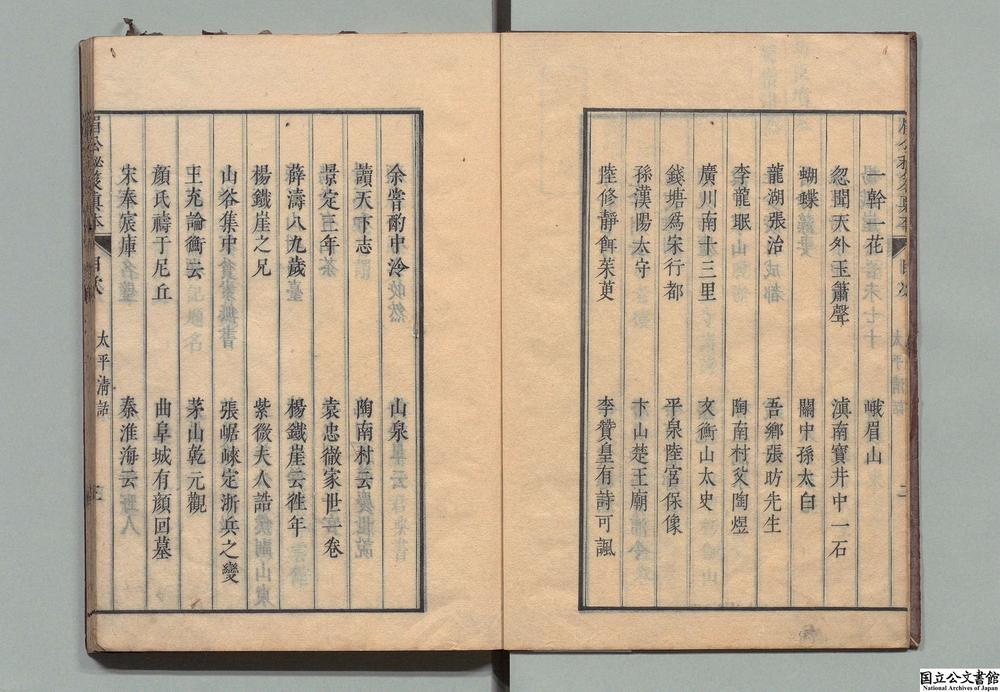 一幹一花
峨眉山
忽聞天外玉簫聲
滇南寶井中一石
蝴蝶
關中孫太白
龍湖張治
吾鄉張昉先生
李龍眠
陶南村父陶煜
廣川南十三里
文衡山太史
錢塘爲宋行都
平泉陸宮保像
孫漢陽太守
卞山楚王廟
陸修靜餌茱萸
李贊皇有詩可諷
余嘗酌中泠
山泉
讀天下志
陶南村云
景定三年
袁忠徹家世一卷
薛濤八九歲
楊鐵崖云徃年
楊鐵崖之兄
紫微夫人誥
山谷集中
張崌崍定浙兵之變
王充論衡云
茅山乾元觀
顏氏禱于尼丘
曲阜城有顏回墓
宋奉宸庫
秦淮海云
眉公秘笈真本
目次
太平清話
三
太平清話
二
国立公文書館
National Archives of Japan